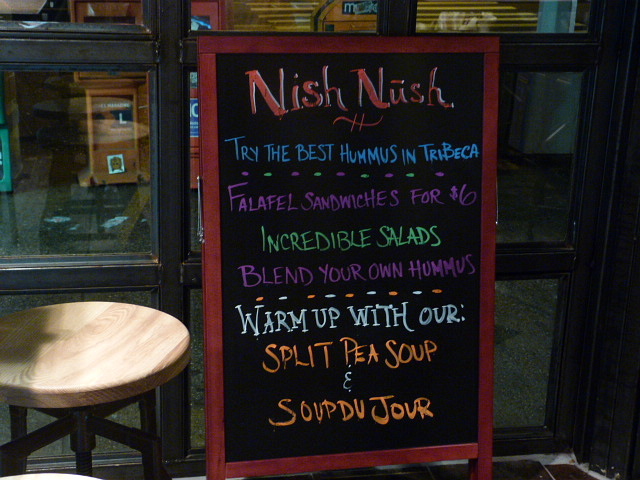 Nish Nūsh
TRY THE BEST HUMMUS IN TRIBECA
FALAFEL SANDWICHES FOR $6
INCREDIBLE SALADS
BLEND YOUR OWN HUMMUS
WARM UP WITH OUR:
SPLIT PEA SOUP
&
SOUP DU JOUR